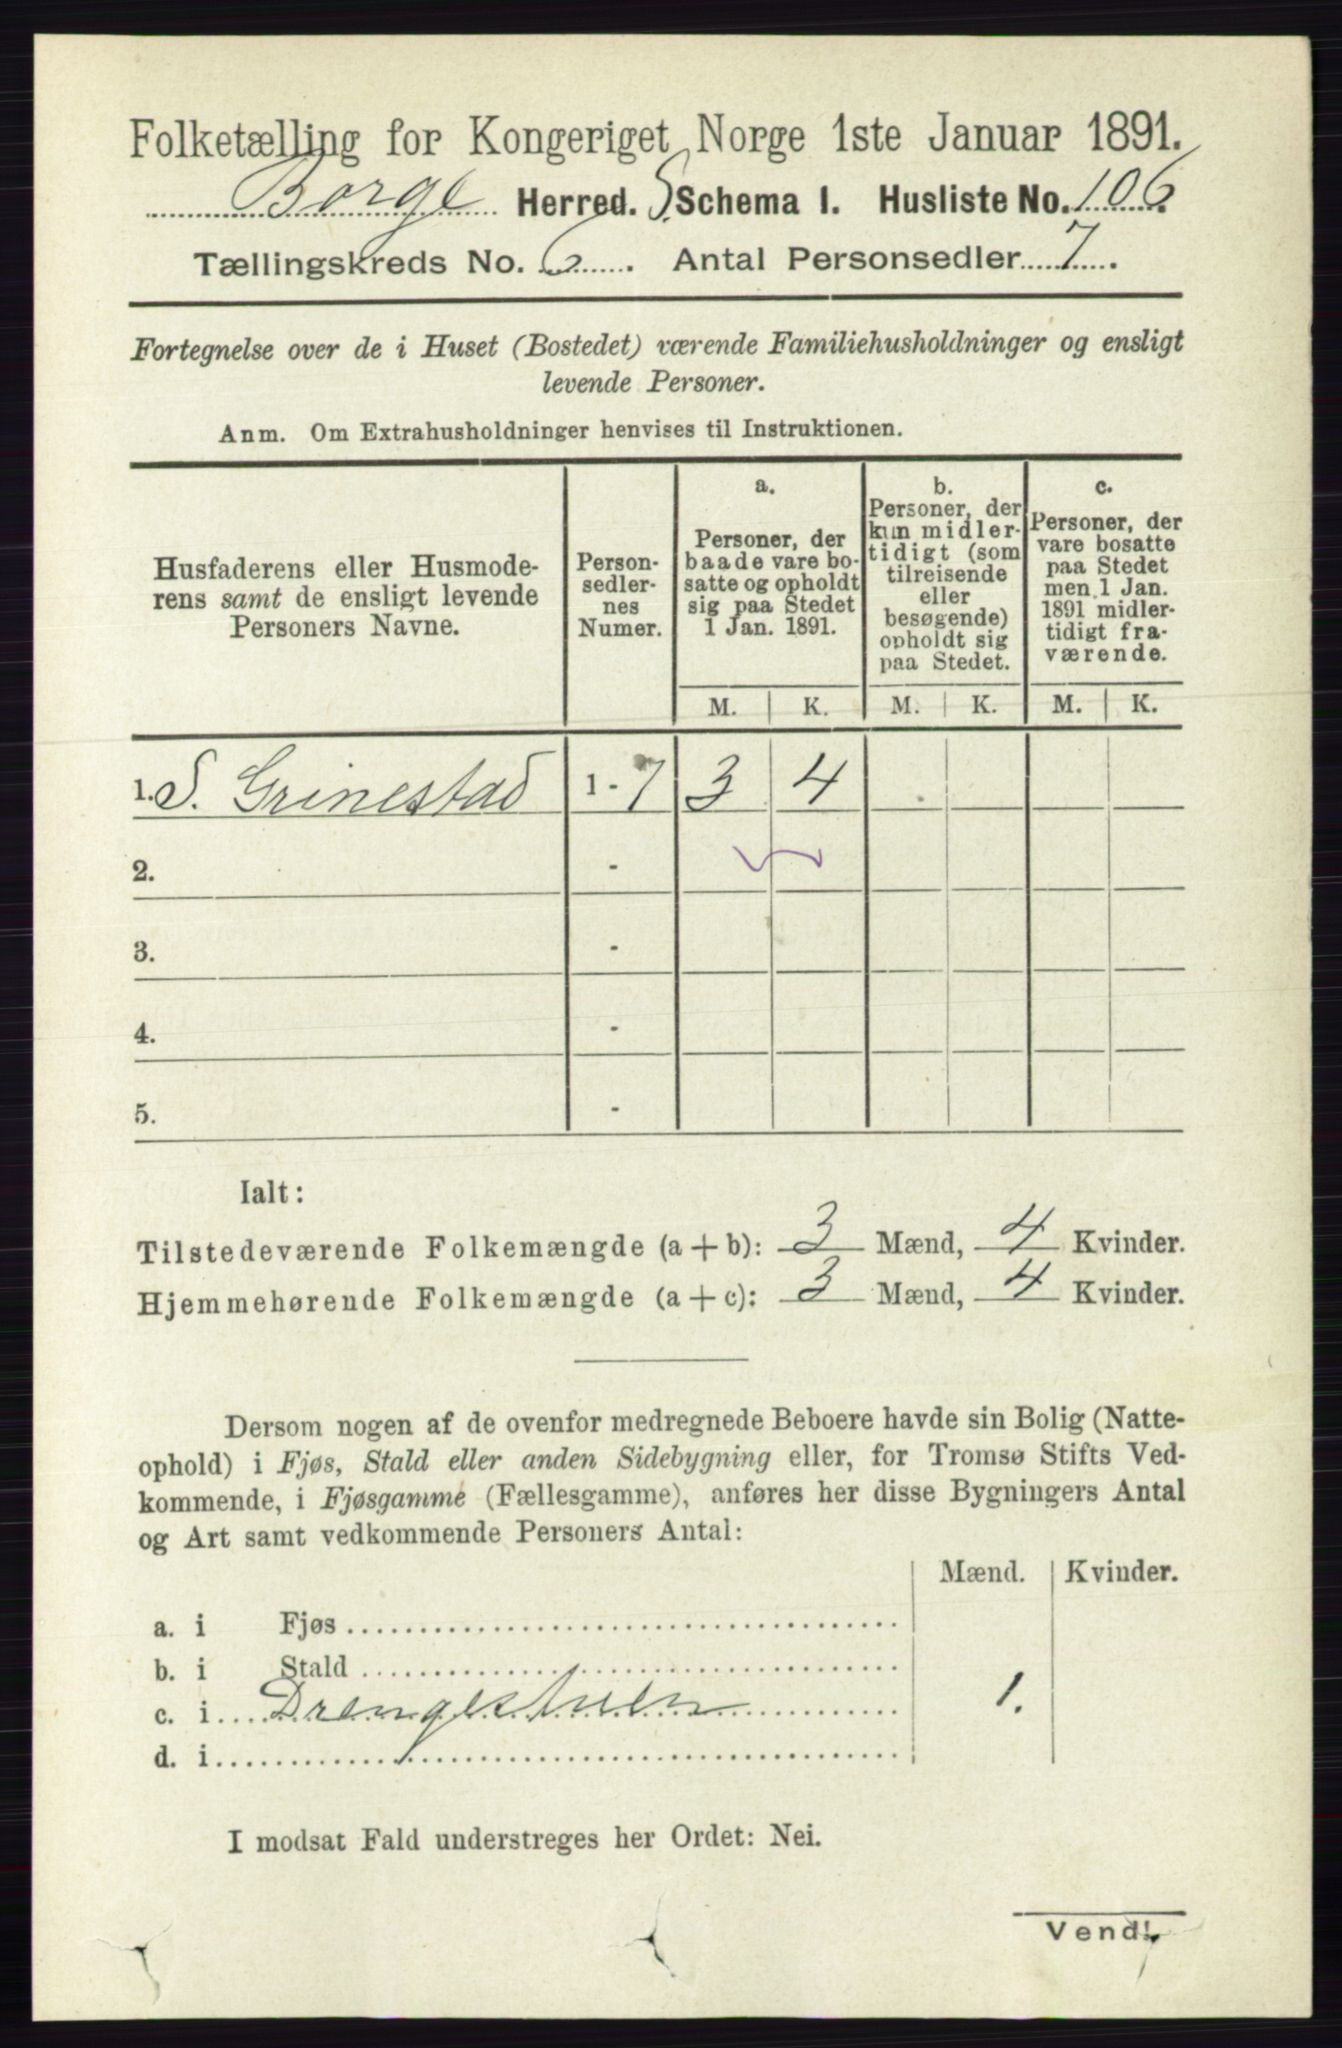 Folketælling for Kongeriget Norge 1ste Januar 1891.
Borge Herred. Schema I. Husliste No. 106.
Tællingskreds No. 6. Antal Personsedler 7.
Fortegnelse over de i Huset (Bostedet) værende Familiehusholdninger og ensligt
levende Personer.
Anm. Om Extrahusholdninger henvises til Instruktionen.
Husfaderens eller Husmode-
rens samt de ensligt levende
Personers Navne.
Person-
sedler-
nes
Numer.
a.
Personer, der
baade vare bo-
satte og opholdt
sig paa Stedet
1 Jan. 1891.
b.
Personer, der
kun midler-
tidigt (som
tilreisende
eller
besøgende)
opholdt sig
paa Stedet.
c.
Personer, der
vare bosatte
paa Stedet
men 1 Jan.
1891 midler-
tidigt fra-
værende.
M. K. M. K. M. K.
1. S. Grinestad 1 - 7 3 4
2. -
3. -
4. -
5. -
Ialt:
Tilstedeværende Folkemængde (a + b): 3 Mænd, 4 Kvinder.
Hjemmehørende Folkemængde (a + c): 3 Mænd, 4 Kvinder.
Dersom nogen af de ovenfor medregnede Beboere havde sin Bolig (Natte-
ophold) i Fjøs, Stald eller anden Sidebygning eller, for Tromsø Stifts Ved-
kommende, i Fjøsgamme (Fællesgamme), anføres her disse Bygningers Antal
og Art samt vedkommende Personers Antal:
Mænd. Kvinder.
a. i Fjøs
b. i Stald
c. i Drengestuen 1.
d. i
I modsat Fald understreges her Ordet: Nei.
Vend!